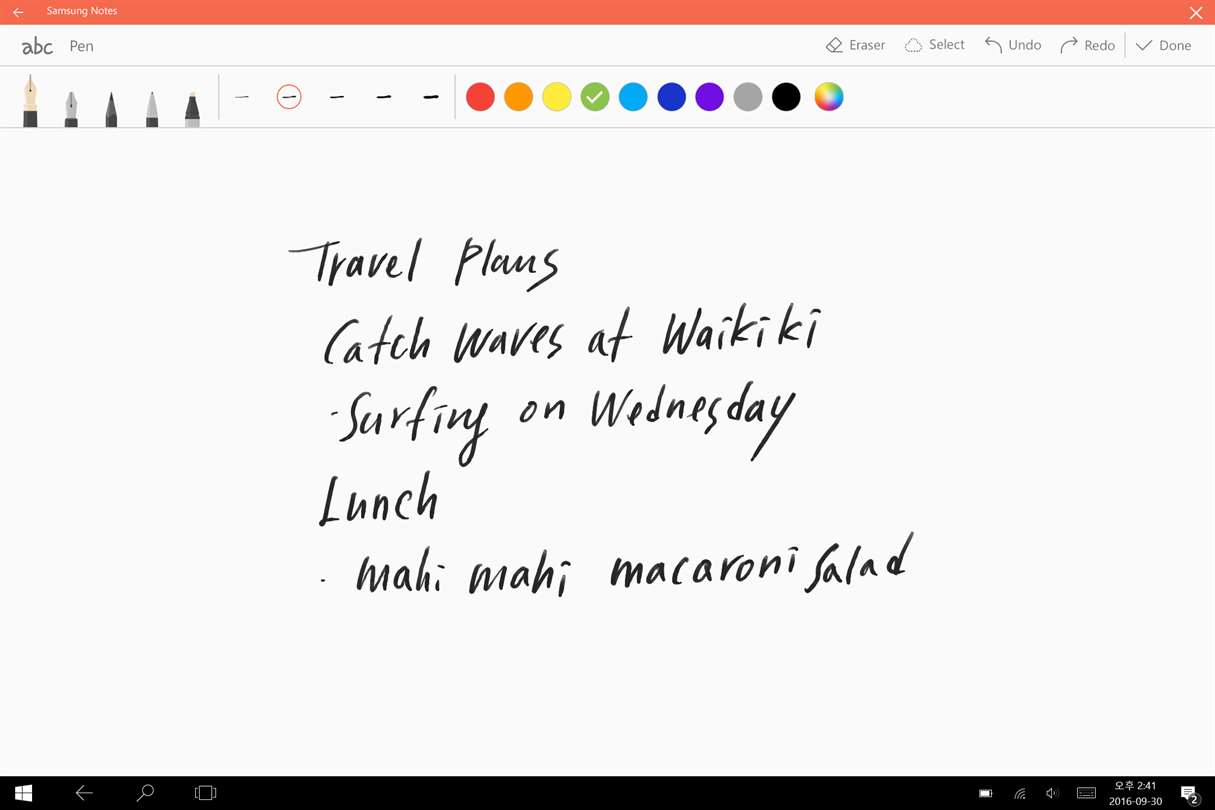 Samsung Notes
abc Pen Eraser Select Undo Redo Done
Travel Plans
Catch waves at Waikiki
· Surfing on Wednesday
Lunch
· mahi mahi macaroni Salad
오후 2:41
2016-09-30
2